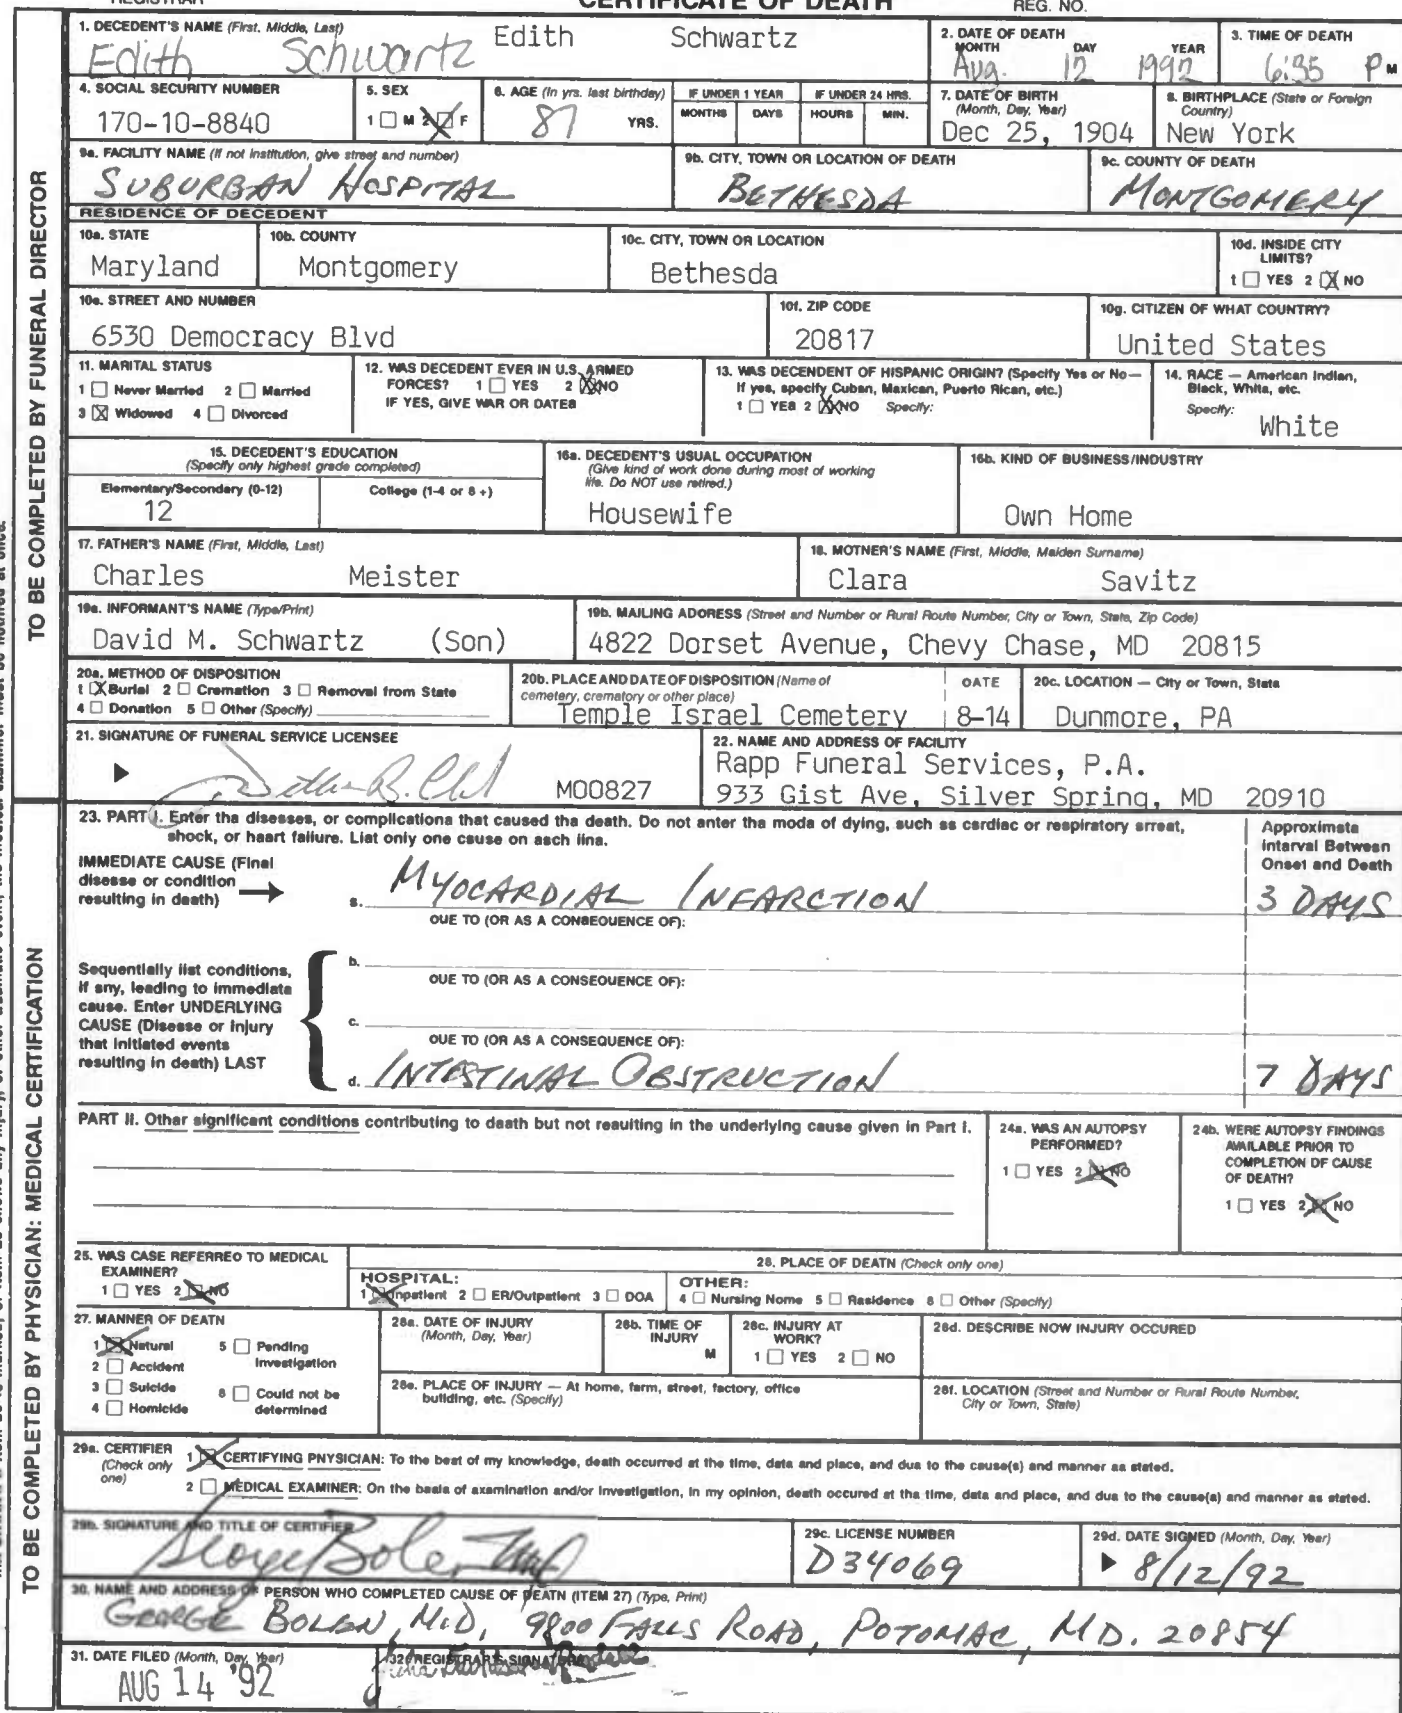 REGISTRAR CERTIFICATE OF DEATH REG. NO.
1. DECEDENT'S NAME (First, Middle, Last)
Edith Schwartz Edith Schwartz
2. DATE OF DEATH
MONTH DAY YEAR
Aug. 12 1992
3. TIME OF DEATH
6:35 P M
4. SOCIAL SECURITY NUMBER
170-10-8840
5. SEX
1 M 2 F
6. AGE (In yrs. last birthday)
87 YRS.
IF UNDER 1 YEAR
MONTHS DAYS
IF UNDER 24 HRS.
HOURS MIN.
7. DATE OF BIRTH
(Month, Day, Year)
Dec 25, 1904
8. BIRTHPLACE (State or Foreign
Country)
New York
9a. FACILITY NAME (If not institution, give street and number)
SUBURBAN HOSPITAL
9b. CITY, TOWN OR LOCATION OF DEATH
BETHESDA
9c. COUNTY OF DEATH
MONTGOMERY
RESIDENCE OF DECEDENT
10a. STATE
Maryland
10b. COUNTY
Montgomery
10c. CITY, TOWN OR LOCATION
Bethesda
10d. INSIDE CITY
LIMITS?
1 YES 2 X NO
10e. STREET AND NUMBER
6530 Democracy Blvd
10f. ZIP CODE
20817
10g. CITIZEN OF WHAT COUNTRY?
United States
11. MARITAL STATUS
1 Never Married 2 Married
3 X Widowed 4 Divorced
12. WAS DECEDENT EVER IN U.S. ARMED
FORCES? 1 YES 2 XX NO
IF YES, GIVE WAR OR DATES
13. WAS DECENDENT OF HISPANIC ORIGIN? (Specify Yes or No—
If yes, specify Cuban, Maxican, Puerto Rican, etc.)
1 YES 2 XX NO Specify:
14. RACE — American Indian,
Black, White, etc.
Specify:
White
15. DECEDENT'S EDUCATION
(Specify only highest grade completed)
Elementary/Secondary (0-12) College (1-4 or 8 +)
12
16a. DECEDENT'S USUAL OCCUPATION
(Give kind of work done during most of working
life. Do NOT use retired.)
Housewife
16b. KIND OF BUSINESS/INDUSTRY
Own Home
17. FATHER'S NAME (First, Middle, Last)
Charles Meister
18. MOTNER'S NAME (First, Middle, Maiden Surname)
Clara Savitz
19a. INFORMANT'S NAME (Type/Print)
David M. Schwartz (Son)
19b. MAILING ADDRESS (Street and Number or Rural Route Number, City or Town, State, Zip Code)
4822 Dorset Avenue, Chevy Chase, MD 20815
20a. METHOD OF DISPOSITION
1 X Burial 2 Cremation 3 Removal from State
4 Donation 5 Other (Specify)
20b. PLACE AND DATE OF DISPOSITION (Name of
cemetery, crematory or other place)
Temple Israel Cemetery
DATE
8-14
20c. LOCATION — City or Town, State
Dunmore, PA
21. SIGNATURE OF FUNERAL SERVICE LICENSEE
M00827
22. NAME AND ADDRESS OF FACILITY
Rapp Funeral Services, P.A.
933 Gist Ave, Silver Spring, MD 20910
TO BE COMPLETED BY FUNERAL DIRECTOR
23. PART I. Enter tha diseases, or complications that caused tha death. Do not anter tha moda of dying, such as cardiac or respiratory arrest,
shock, or haart failure. List only one cause on aach lina.
Approximata
Intarval Between
Onset and Death
IMMEDIATE CAUSE (Final
disease or condition
resulting in death)
a. MYOCARDIAL INFARCTION 3 DAYS
OUE TO (OR AS A CONSEOUENCE OF):
Sequentially list conditions,
if any, leading to immediata
cause. Enter UNDERLYING
CAUSE (Disease or injury
that initiated events
resulting in death) LAST
b.
OUE TO (OR AS A CONSEOUENCE OF):
c.
OUE TO (OR AS A CONSEQUENCE OF):
d. INTESTINAL OBSTRUCTION 7 DAYS
PART II. Other significant conditions contributing to daath but not resulting in the underlying cause given in Part I.
24a. WAS AN AUTOPSY
PERFORMED?
1 YES 2 NO
24b. WERE AUTOPSY FINDINGS
AVAILABLE PRIOR TO
COMPLETION OF CAUSE
OF DEATH?
1 YES 2 NO
25. WAS CASE REFERREO TO MEDICAL
EXAMINER?
1 YES 2 NO
26. PLACE OF DEATH (Check only one)
HOSPITAL:
1 Inpatient 2 ER/Outpatient 3 DOA
OTHER:
4 Nursing Nome 5 Rasidence 6 Other (Specify)
27. MANNER OF DEATN
1 Natural 5 Pending
2 Accident Investigation
3 Suicide 6 Could not be
4 Homicide determined
28a. DATE OF INJURY
(Month, Day, Year)
28b. TIME OF
INJURY
M
28c. INJURY AT
WORK?
1 YES 2 NO
28d. DESCRIBE NOW INJURY OCCURED
28e. PLACE OF INJURY — At home, farm, street, factory, office
building, etc. (Specify)
28f. LOCATION (Street and Number or Rural Route Number,
City or Town, State)
29a. CERTIFIER
(Check only
one)
1 CERTIFYING PNYSICIAN: To the best of my knowledge, death occurred at the time, data and place, and dua to the cause(s) and manner as stated.
2 MEDICAL EXAMINER: On the basis of axamination and/or investigation, in my opinion, death occured at tha time, data and place, and dua to the cause(s) and manner as stated.
29b. SIGNATURE AND TITLE OF CERTIFIER
George Bolen MD
29c. LICENSE NUMBER
D34069
29d. DATE SIGNED (Month, Day, Year)
8/12/92
30. NAME AND ADDRESS OF PERSON WHO COMPLETED CAUSE OF DEATH (ITEM 27) (Type, Print)
GEORGE BOLEN, M.D, 9800 FALLS ROAD, POTOMAC, MD. 20854
31. DATE FILED (Month, Day, Year)
AUG 14 '92
32. REGISTRAR'S SIGNATURE
TO BE COMPLETED BY PHYSICIAN: MEDICAL CERTIFICATION